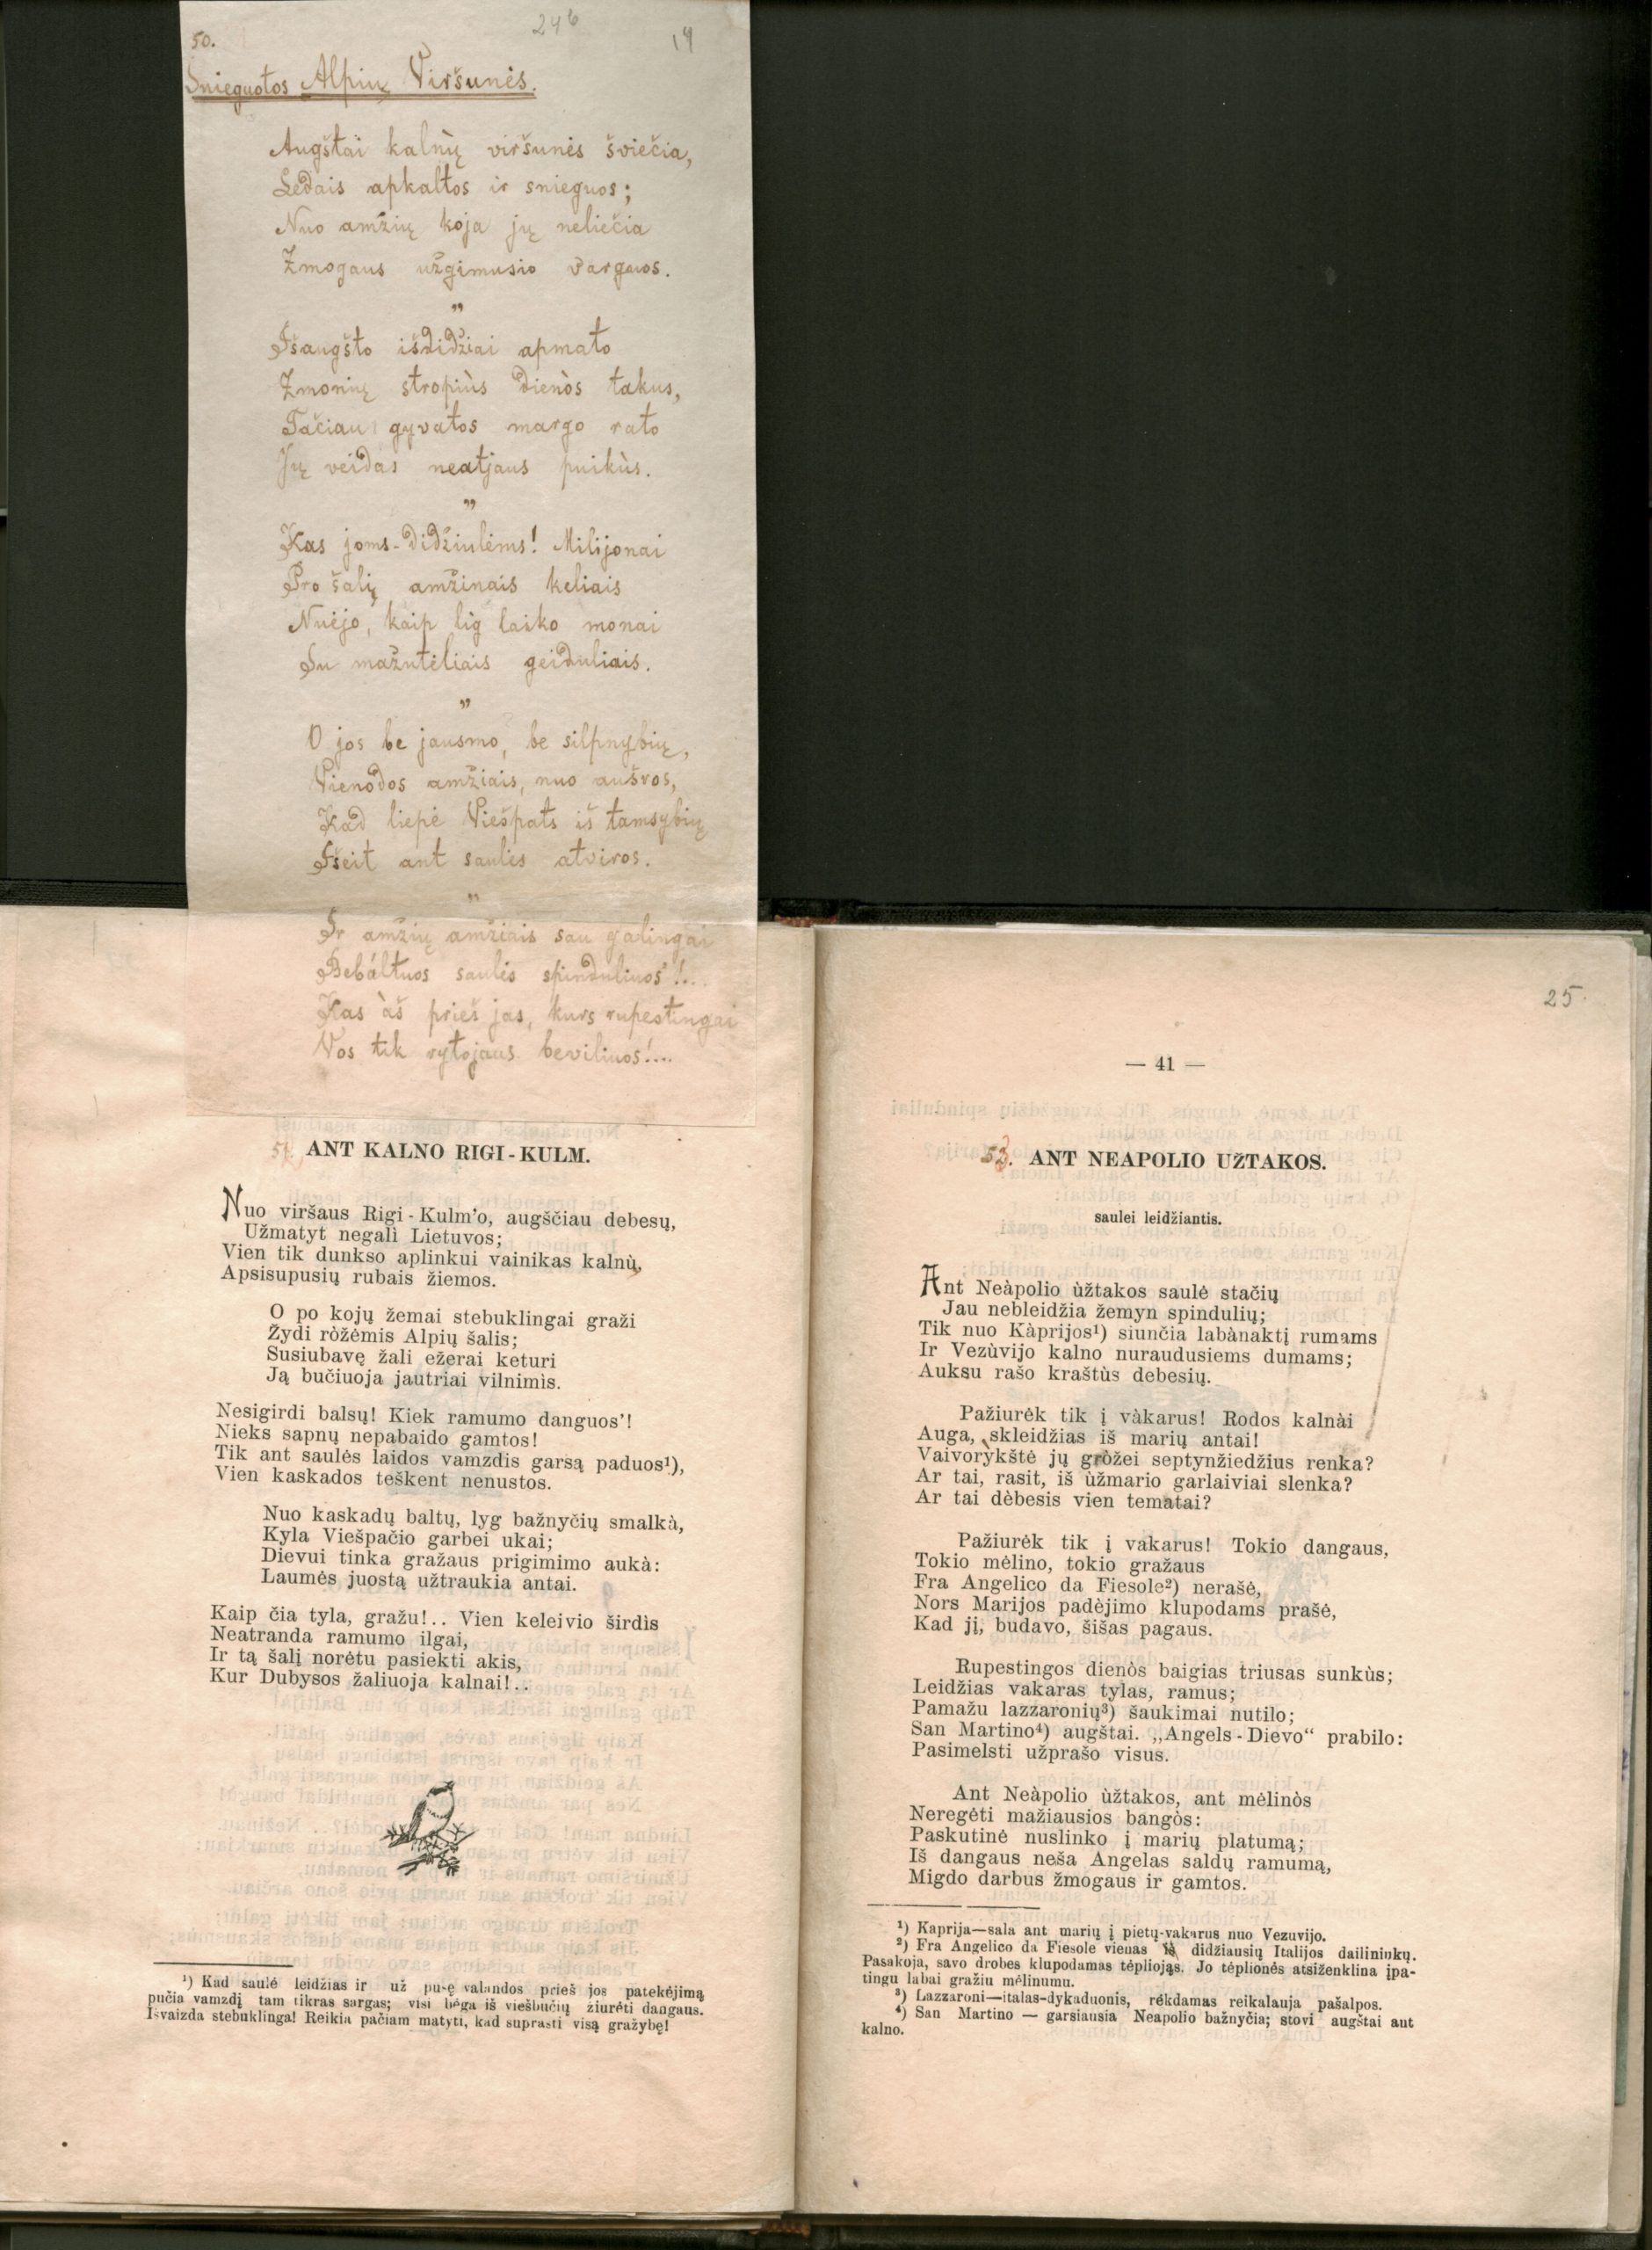 50.
246
14
Snieguotos Alpių Viršunės.
Augštai kalnų̀ viršunės šviečia,
Ledais apkaltos ir snieguos;
Nuo amžių koja jų neliečia
Žmogaus užgimusio varguos.
„
Išaugšto išdidžiai apmato
Žmonių stropiùs dienòs takus,
Tačiau gyvatos margo rato
Jų veidas neatjaus puikùs.
„
Kas joms-didžiulėms! Milijonai
Pro šalį amžinais keliais
Nuėjo, kaip lig laiko monai
Su mažutėliais geiduliais.
„
O jos be jausmo, be silpnybių,
Vienodos amžiais, nuo aušros,
Kad liepė Viešpats iš tamsybių
Išeit ant saulės atviros.
„
Ir amžių amžiais sau galingai
Bebáltuos saulės spinduliuos'!...
Kas àš prieš jas, kurs rupestingai
Vos tik rytojaus beviliuos!...
51. ANT KALNO RIGI-KULM.
Nuo viršaus Rigi-Kulm'o, augščiau debesų,
Užmatyt negalì Lietuvos;
Vien tik dunkso aplinkui vainikas kalnų̀,
Apsisupusių rubais žiemos.
O po kojų žemai stebuklingai graži
Žydi ròžėmis Alpių šalis;
Susiubavę žali ežerai keturi
Ją bučiuoja jautriai vilnimìs.
Nesigirdi balsų! Kiek ramumo danguos'!
Nieks sapnų nepabaido gamtos!
Tik ant saulės laidos vamzdis garsą paduos¹),
Vien kaskados teškent nenustos.
Nuo kaskadų baltų, lyg bažnyčių smalkà,
Kyla Viešpačio garbei ukai;
Dievui tinka gražaus prigimimo aukà:
Laumės juostą užtraukia antai.
Kaip čia tyla, gražu!.. Vien keleivio širdìs
Neatranda ramumo ilgai,
Ir tą šalį norėtu pasiekti akis,
Kur Dubysos žaliuoja kalnai!..
¹) Kad saulė leidžias ir už pusę valandos prieš jos patekėjimą
pučia vamzdį tam tikras sargas; visi bėga iš viešbučių žiurėti dangaus.
Išvaizda stebuklinga! Reikia pačiam matyti, kad suprasti visą gražybę!
25.
— 41 —
53. ANT NEAPOLIO UŽTAKOS.
saulei leidžiantis.
Ant Neàpolio ùžtakos saulė stačių
Jau nebleidžia žemyn spindulių;
Tik nuo Kàprijos¹) siunčia labànaktį rumams
Ir Vezùvijo kalno nuraudusiems dumams;
Auksu rašo kraštùs debesių.
Pažiurėk tik į vàkarus! Rodos kalnài
Auga, skleidžias iš marių antai!
Vaivorykštė jų gròžei septynžiedžius renka?
Ar tai, rasit, iš ùžmario garlaiviai slenka?
Ar tai dėbesis vien tematai?
Pažiurėk tik į vakarus! Tokio dangaus,
Tokio mėlino, tokio gražaus
Fra Angelico da Fiesole²) nerašė,
Nors Marijos padėjimo klupodams prašė,
Kad jį, budavo, šišas pagaus.
Rupestingos dienòs baigias triusas sunkùs;
Leidžias vakaras tylas, ramus;
Pamažu lazzaronių³) šaukimai nutilo;
San Martino⁴) augštai. „Angels-Dievo“ prabilo:
Pasimelsti užprašo visus.
Ant Neàpolio ùžtakos, ant mėlinòs
Neregėti mažiausios bangòs:
Paskutinė nuslinko į marių platumą;
Iš dangaus neša Angelas saldų ramumą,
Migdo darbus žmogaus ir gamtos.
¹) Kaprija—sala ant marių į pietų-vakarus nuo Vezuvijo.
²) Fra Angelico da Fiesole vienas iš didžiausių Italijos dailininkų.
Pasakoja, savo drobes klupodamas tėpliojąs. Jo tėplionės atsiženklina įpa-
tingu labai gražiu mėlinumu.
³) Lazzaroni—italas-dykaduonis, rėkdamas reikalauja pašalpos.
⁴) San Martino — garsiausia Neapolio bažnyčia; stovi augštai ant
kalno.